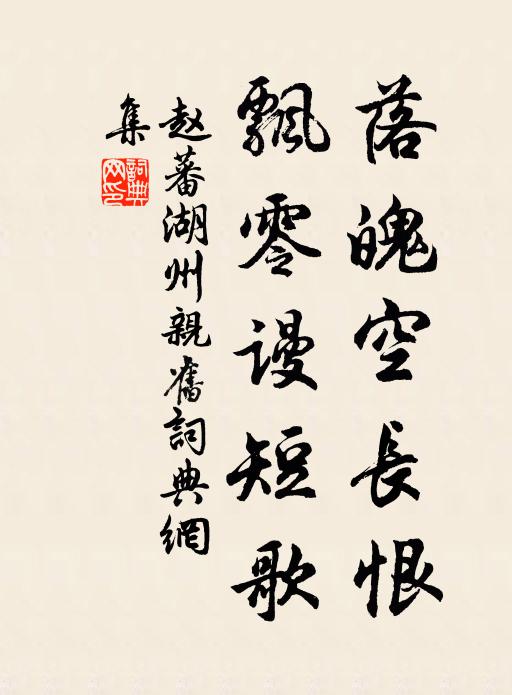 落魄空長恨
飄零謾短歌
赵蕃湖州親舊詞典網
集
詞典網印